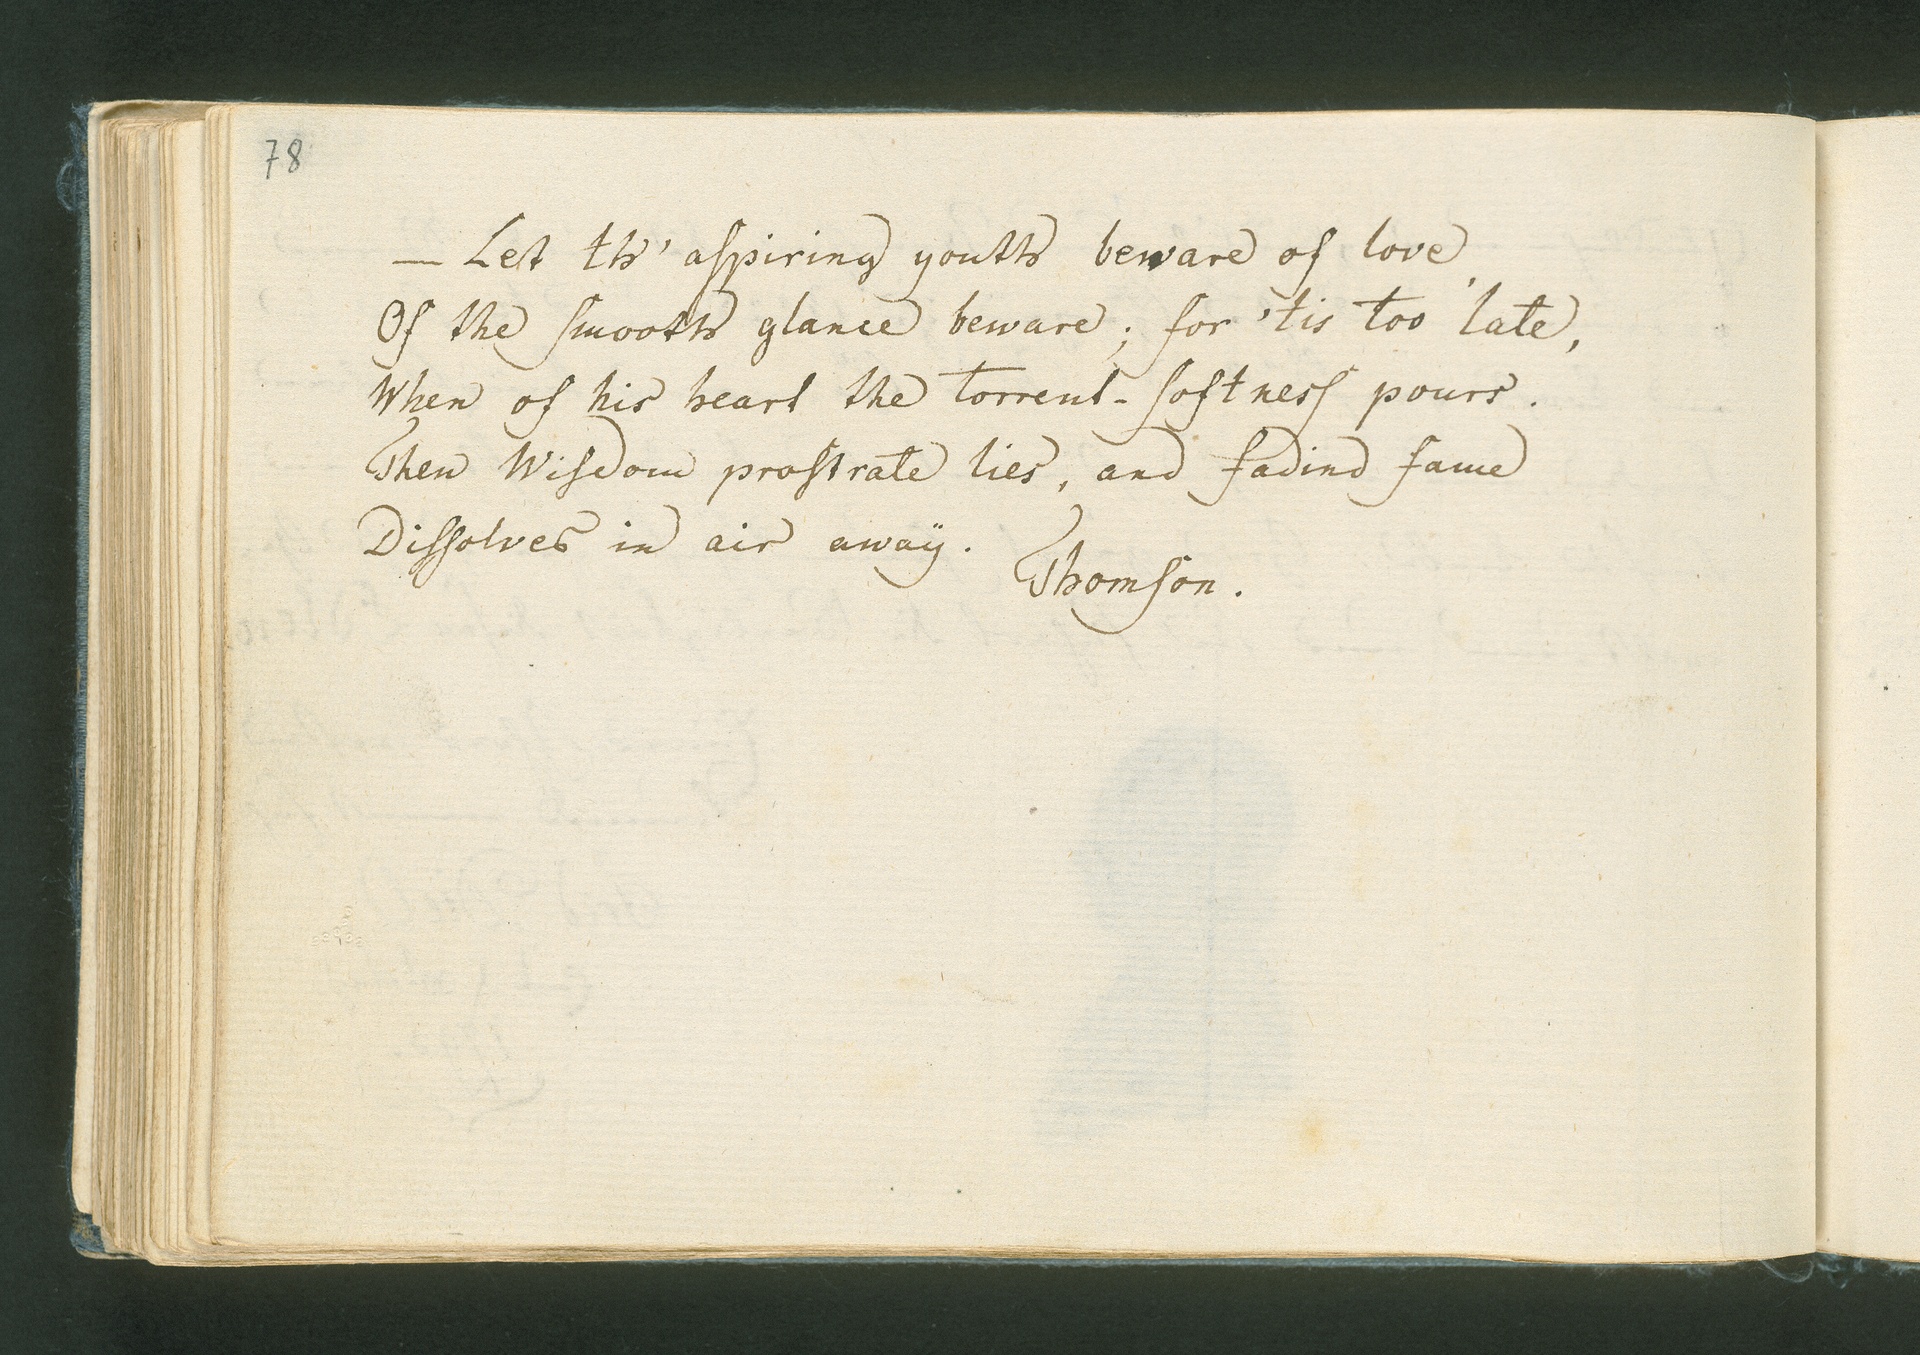 78
— Let th' aspiring youth beware of love,
Of the smooth glance beware; for 'tis too late,
When of his heart the torrent-softness pours.
Then Wisdom prostrate lies, and fadind fame
Dissolves in air awaÿ.
Thomson.